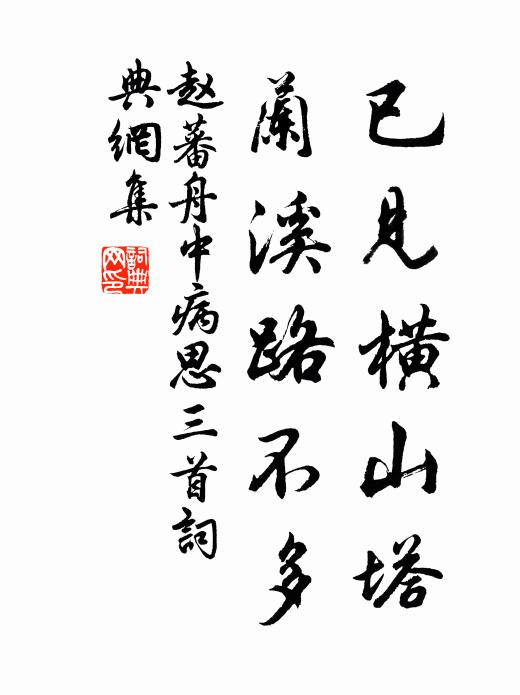 已見横山塔
蘭溪路不多
赵蕃舟中病思三首詞
典網集
詞典
网印